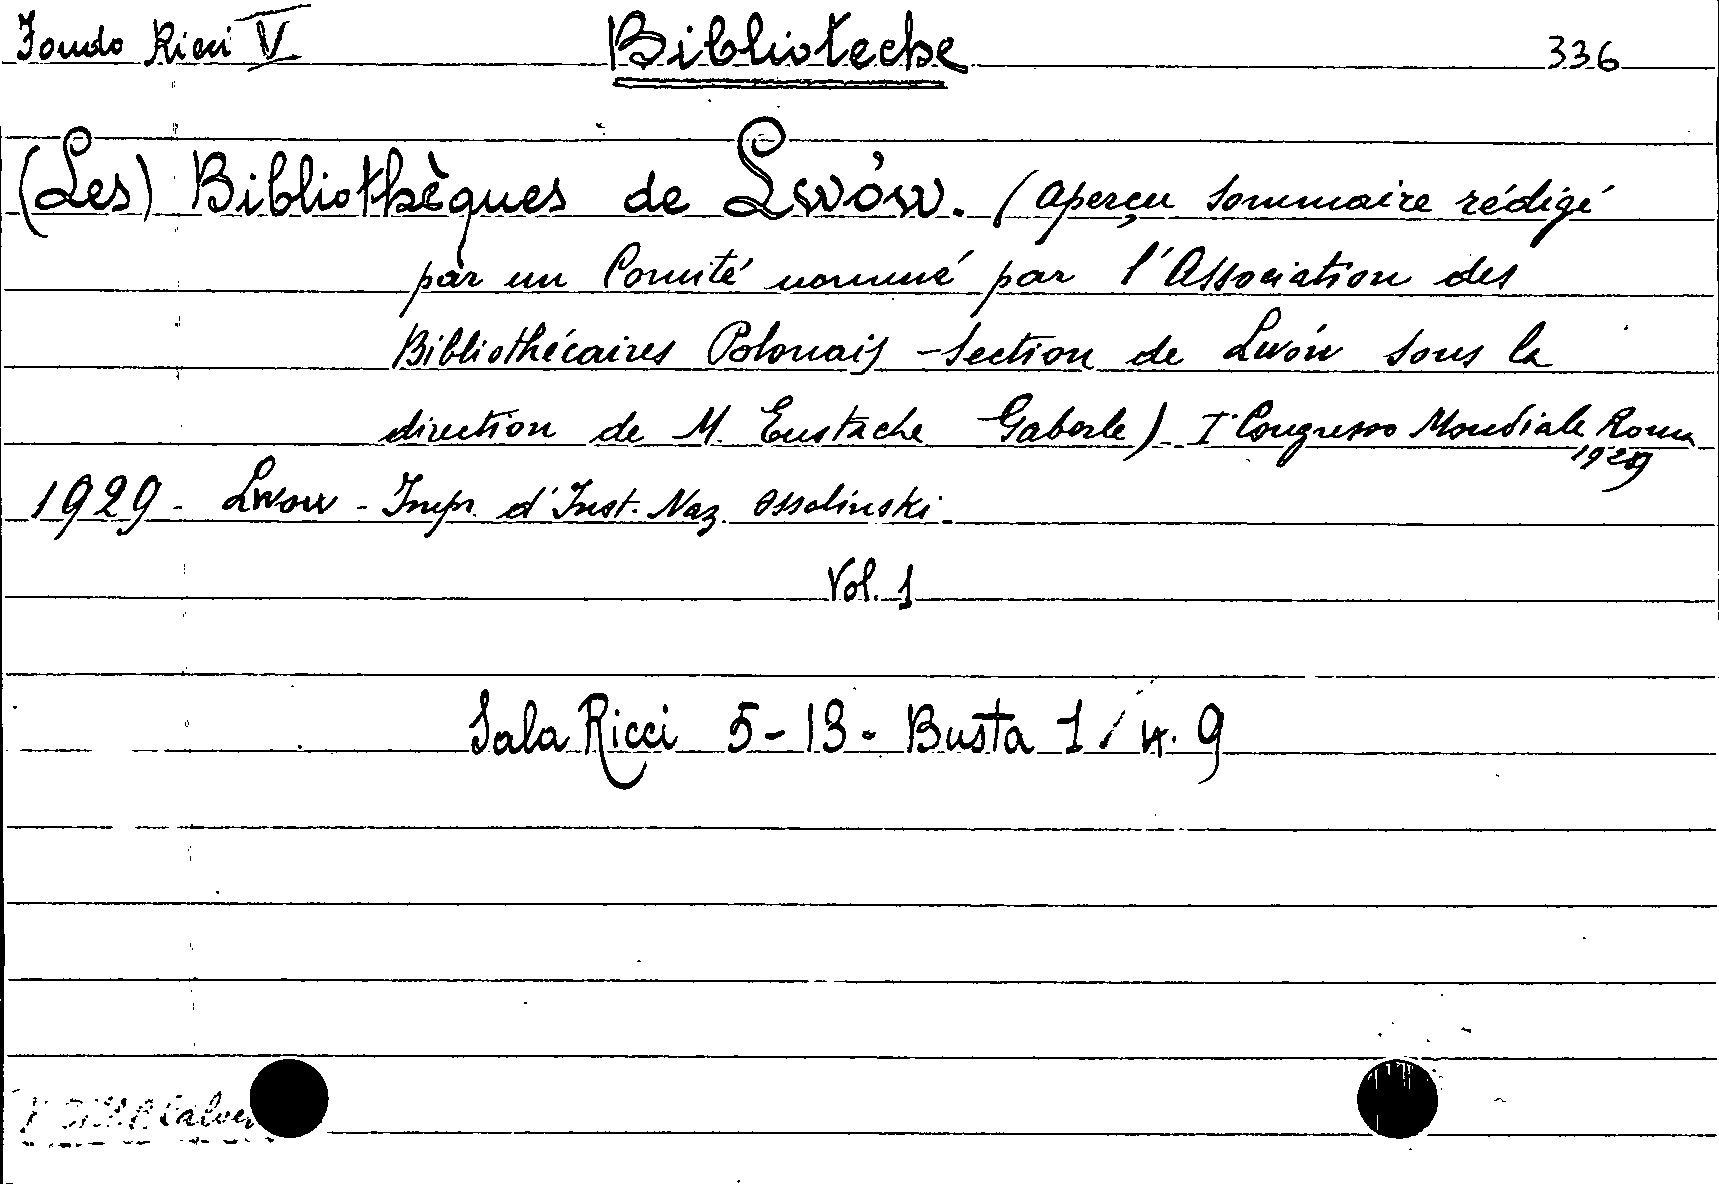 Fondo Ricci V Biblioteche 336
(Les) Bibliothèques de Lwów. (Aperçu sommaire rédigé
par un Comité nommé par l'Association des
Bibliothécaires Polonais - Section de Lwów sous la
direction de M. Eustache Gaberle) I Congresso Mondiale Roma
1929
1929 - Lwow - Impr. d'Inst. Naz. Ossolinski.
Vol. 1
Sala Ricci 5-13 - Busta 1 / n. 9